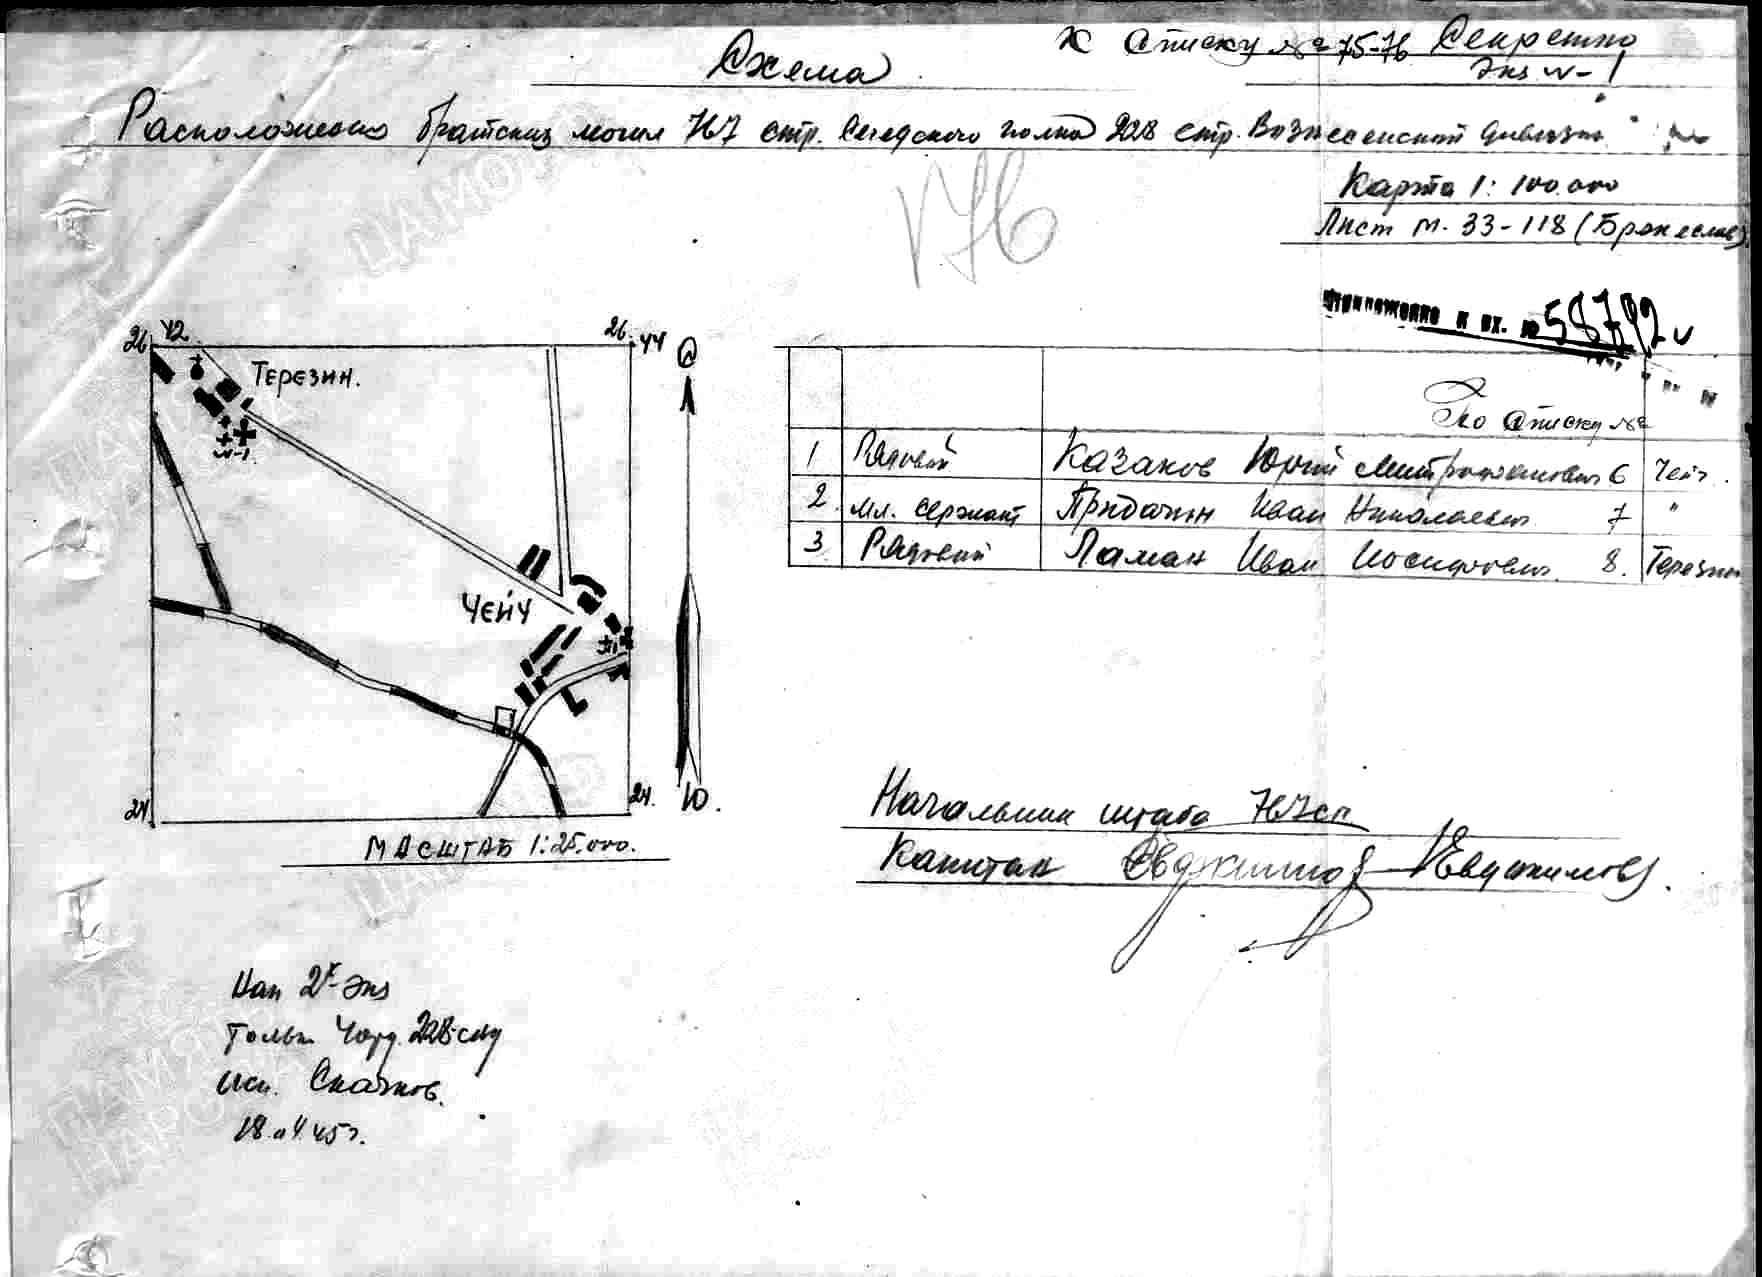 К списку № 75-76 Секретно
Экз № 1
Схема
Расположено братских могил 767 стр. Сегедского полка 228 стр. Вознесенской дивизии
176
Карта 1: 100.000
Лист М-33-118 (Бранеслав)
Приложение к вх. № 58792
26 42 26 44
Терезин.
№-1
Чейч
24 24.
С
Ю.
Масштаб 1:25.000.
По списку №
1 Рядовой Казаков Юрий Митрофанович 6 Чейч
2 мл. сержант Придачин Иван Николаевич 7 "
3 Рядовой Ламан Иван Иосифович 8. Терезин
Начальник штаба 767 сп
Капитан Евдокимов
Нап 2х экз
228 сд
исп. Скачков.
18.04.45 г.
ЦАМО
ПАМЯТЬ
НАРОДА